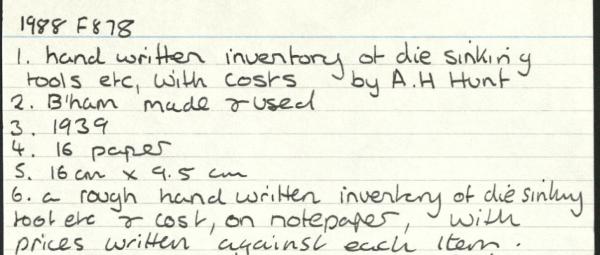 1988 F878
1. hand written inventory of die sinking
tools etc, with costs by A.H Hunt
2. B'ham made & used
3. 1939
4. 16 paper
5. 16 cm x 9.5 cm
6. a rough hand written inventory of die sinking
tool etc & cost, on notepaper, with
prices written against each item.